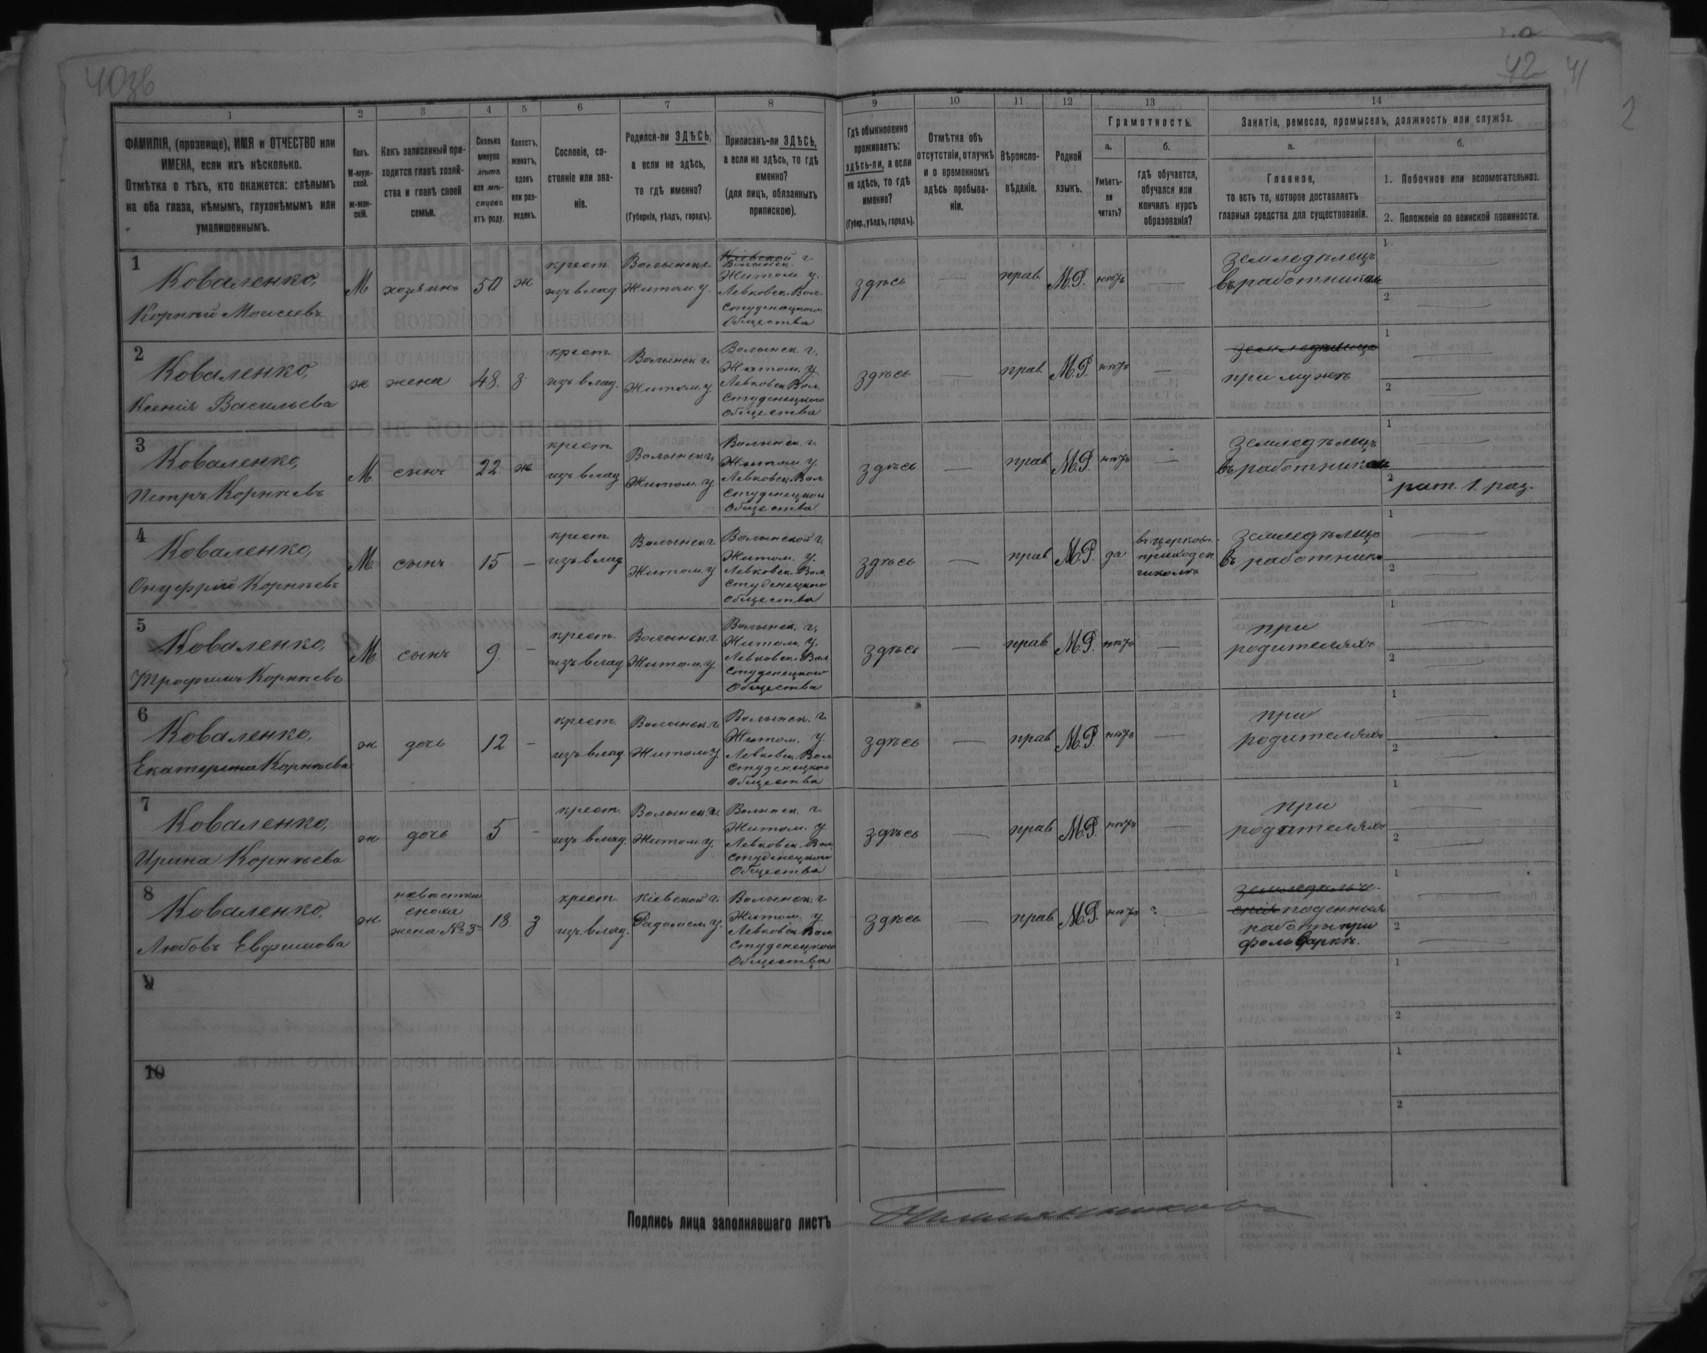 403б
42
41
2
1
2
3
4
5
6
7
8
9
10
11
12
13
14
ФАМИЛІЯ, (прозвище), ИМЯ и ОТЧЕСТВО или
ИМЕНА, если ихъ нѣсколько.
Отмѣтка о тѣхъ, кто окажется: слѣпымъ
на оба глаза, нѣмымъ, глухонѣмымъ или
умалишеннымъ.
Полъ.
М-муж-
ской.
ж-жен-
скій.
Какъ записанный при-
ходится главѣ хозяй-
ства и главѣ своей
семьи.
Сколько
минуло
лѣтъ
или мѣ-
сяцевъ
отъ роду.
Холостъ,
женатъ,
вдовъ
или раз-
веденъ.
Сословіе, со-
стояніе или зва-
ніе.
Родился-ли ЗДѢСЬ,
а если не здѣсь,
то гдѣ именно?
(Губернія, уѣздъ, городъ).
Приписанъ-ли ЗДѢСЬ,
а если не здѣсь, то гдѣ
именно?
(для лицъ, обязанныхъ
припискою).
Гдѣ обыкновенно
проживаетъ:
здѣсь-ли, а если
не здѣсь, то гдѣ
именно?
(Губер., уѣздъ, городъ).
Отмѣтка объ
отсутствіи, отлучкѣ
и о временномъ
здѣсь пребыва-
ніи.
Вѣроиспо-
вѣданіе.
Родной
языкъ.
Грамотность.
а.
Умѣетъ-
ли
читать?
б.
гдѣ обучается,
обучался или
кончилъ курсъ
образованія?
Занятіе, ремесло, промыселъ, должность или служба.
а.
Главное,
то есть то, которое доставляетъ
главныя средства для существованія.
б.
1. Побочное или вспомогательное.
2. Положеніе по воинской повинности.
1
Коваленко,
Корній Моисеевъ
М
хозяинъ
50
ж
крест.
изъ влад.
Волынск.
Житом. у.
Кіевской г.
Волынск.
Житом. у.
Левковск. Вол.
Студенецком
Общества
здѣсь
—
прав.
М.Р.
нѣтъ
—
земледѣлецъ
въ работникахъ
1
2
2
Коваленко,
Ксенія Васильева
ж
жена
48.
з
крест.
изъ влад.
Волынск г.
Житом. у
Волынск. г.
Житом. у
Левковск. Вол.
Студенецкого
Общества
здѣсь
—
прав.
М.Р.
нѣтъ
—
при мужѣ
1
2
3
Коваленко,
Петръ Корнѣевъ
М
сынъ
22
ж
крест.
изъ влад
Волынск г.
Житом. у
Волынск. г.
Житом. у.
Левковск. Вол
Студенецком
Общества
здѣсь
—
прав.
М.Р.
нѣтъ
—
Земледѣлецъ
въ работникахъ
1
2
рат. 1. раз.
4
Коваленко,
Онуфрій Корнѣевъ
М
сынъ
15
—
крест.
изъ влад
Волынск г
Житом. у
Волынской г
Житом. у.
Левковск. Вол
Студенецкого
Общества
здѣсь
—
прав
М.Р.
да
въ церковн.
приходск
школѣ
Земледѣлецъ
въ работник
1
2
5
Коваленко,
Трофимъ Корнѣевъ
М
сынъ
9
—
крест.
изъ влад
Волынск г.
Житом. у
Волынск. г.
Житом. у.
Левковск. Вол
Студенецкого
Общества
здѣсь
—
прав
М.Р.
нѣтъ
—
при
родителяхъ
1
2
6
Коваленко,
Екатерина Корнѣева
ж
дочь
12
—
крест.
изъ влад
Волынск г.
Житом у
Волынск. г
Житом. у
Левковск. Вол
Студенецкого
Общества
здѣсь
—
прав
М.Р.
нѣтъ
—
при
родителяхъ
1
2
7
Коваленко,
Ирина Корнѣева
ж
дочь
5
—
крест.
изъ влад.
Волынск г.
Житом у.
Волынск. г.
Житом. у
Левковск. Вол
Студенецкого
Общества
здѣсь
—
прав
М.Р.
нѣтъ
—
при
родителяхъ
1
2
8
Коваленко,
Любовь Евфимова
ж
невѣстка
сноха
жена № 3
18
з
крест
изъ влад.
Кіевской г.
Радомысл. у.
Волынск. г
Житом. у
Левковск Вол
Студенецкого
Общества
здѣсь
—
прав.
М.Р.
нѣтъ
—
поденныя
работы при
фольваркѣ.
1
2
9
1
2
10
1
2
Подпись лица заполнявшаго листъ